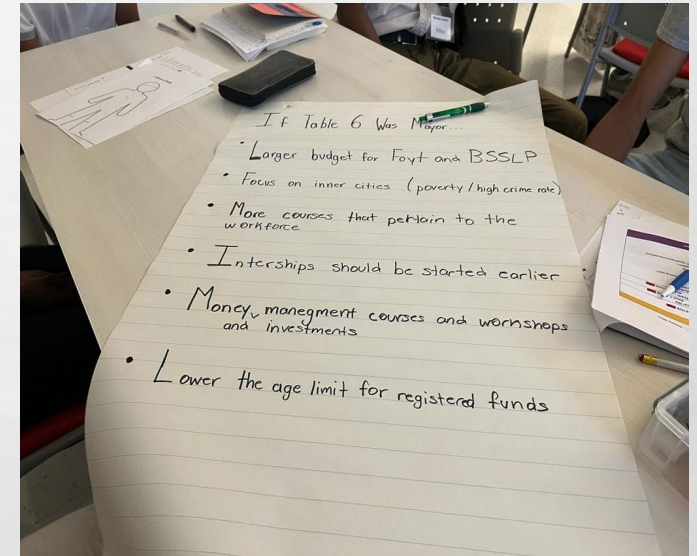 If Table 6 Was Mayor...
• Larger budget for Foyt and BSSLP
• Focus on inner cities (poverty / high crime rate)
• More courses that pertain to the
workforce
• Interships should be started earlier
• Money, manegment courses and wornshops
and investments
• Lower the age limit for registered funds